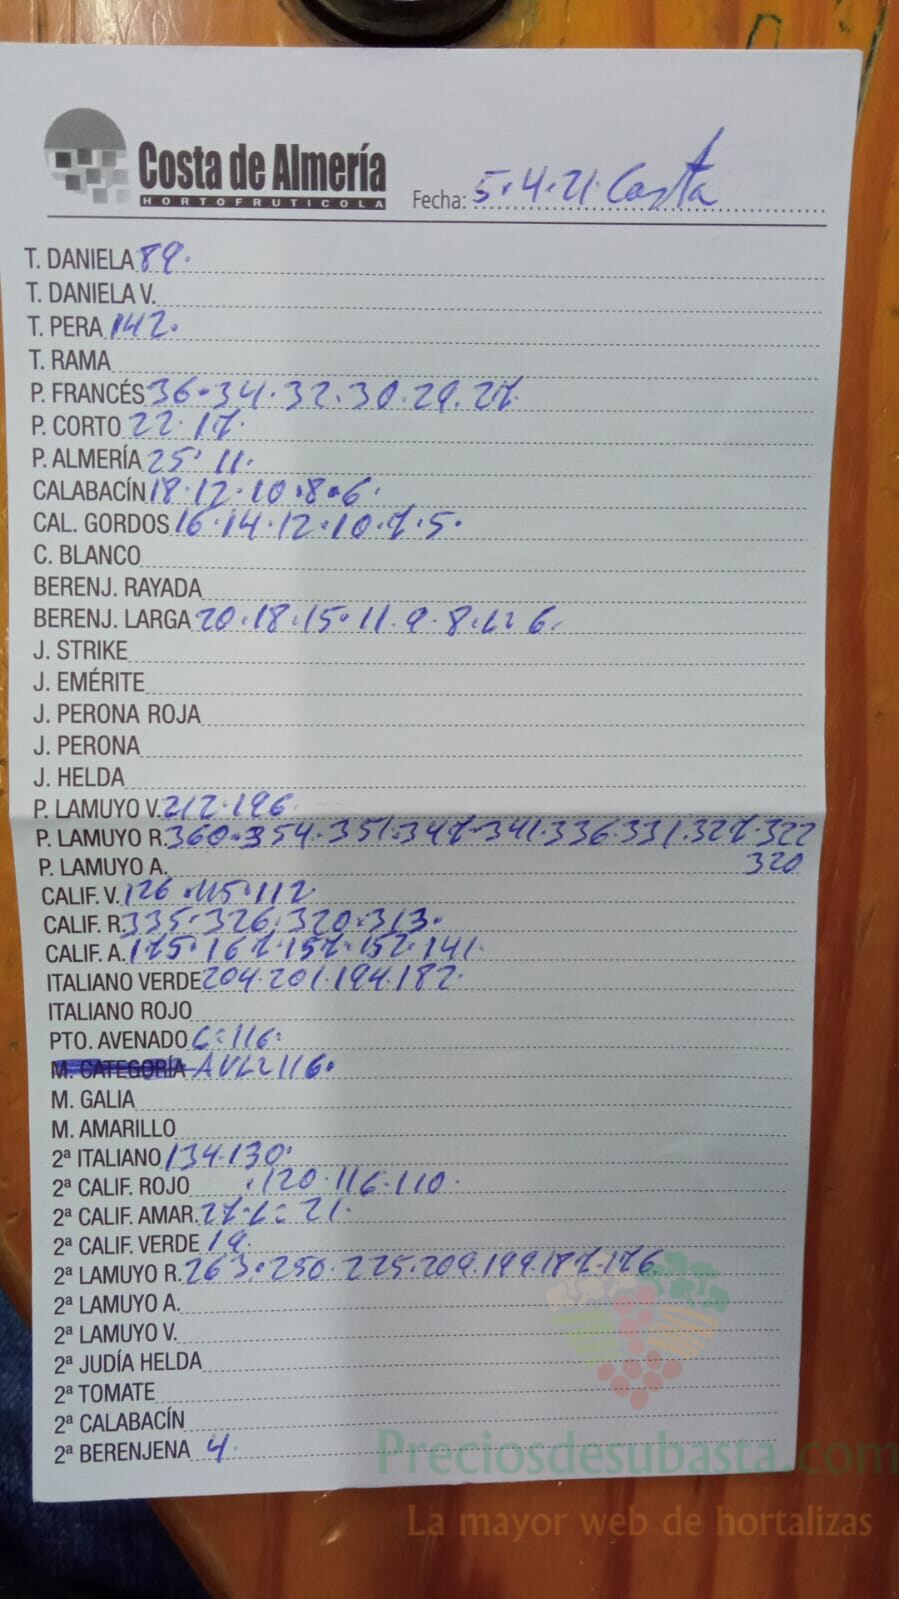 Costa de Almería
HORTOFRUTICOLA
Fecha: 5.4.21. Costa
T. DANIELA 89.
T. DANIELA V.
T. PERA 142.
T. RAMA
P. FRANCÉS 36.34.32.30.29.27
P. CORTO 22.17.
P. ALMERÍA 25.11.
CALABACÍN 18.12.10.8.6.
CAL. GORDOS 16.14.12.10.7.5.
C. BLANCO
BERENJ. RAYADA
BERENJ. LARGA 20.18.15.11.9.8. 6.
J. STRIKE
J. EMÉRITE
J. PERONA ROJA
J. PERONA
J. HELDA
P. LAMUYO V. 212.196
P. LAMUYO R. 360.354.351.347.341.336.331.327.322
P. LAMUYO A. 320
CALIF. V. 126.115.112
CALIF. R. 335.326.320.313.
CALIF. A. 175.167.157.152.141.
ITALIANO VERDE 204.201.194.182.
ITALIANO ROJO
PTO. AVENADO 116.
M. CATEGORÍA 116.
M. GALIA
M. AMARILLO
2ª ITALIANO 134.130.
2ª CALIF. ROJO .120.116.110.
2ª CALIF. AMAR. 27. 21.
2ª CALIF. VERDE 19.
2ª LAMUYO R. 263.250.225.209.199.187.176
2ª LAMUYO A.
2ª LAMUYO V.
2ª JUDÍA HELDA
2ª TOMATE
2ª CALABACÍN
2ª BERENJENA 4.
Preciosdesubasta.com
La mayor web de hortalizas